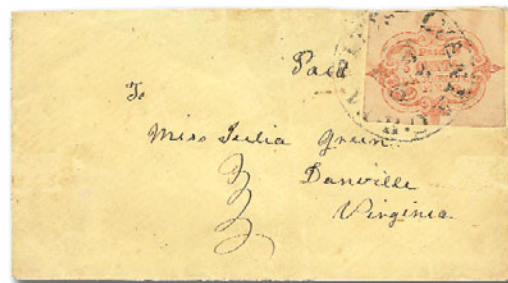 Paid
To
Miss Julia Green
Danville
Virginia
PAID